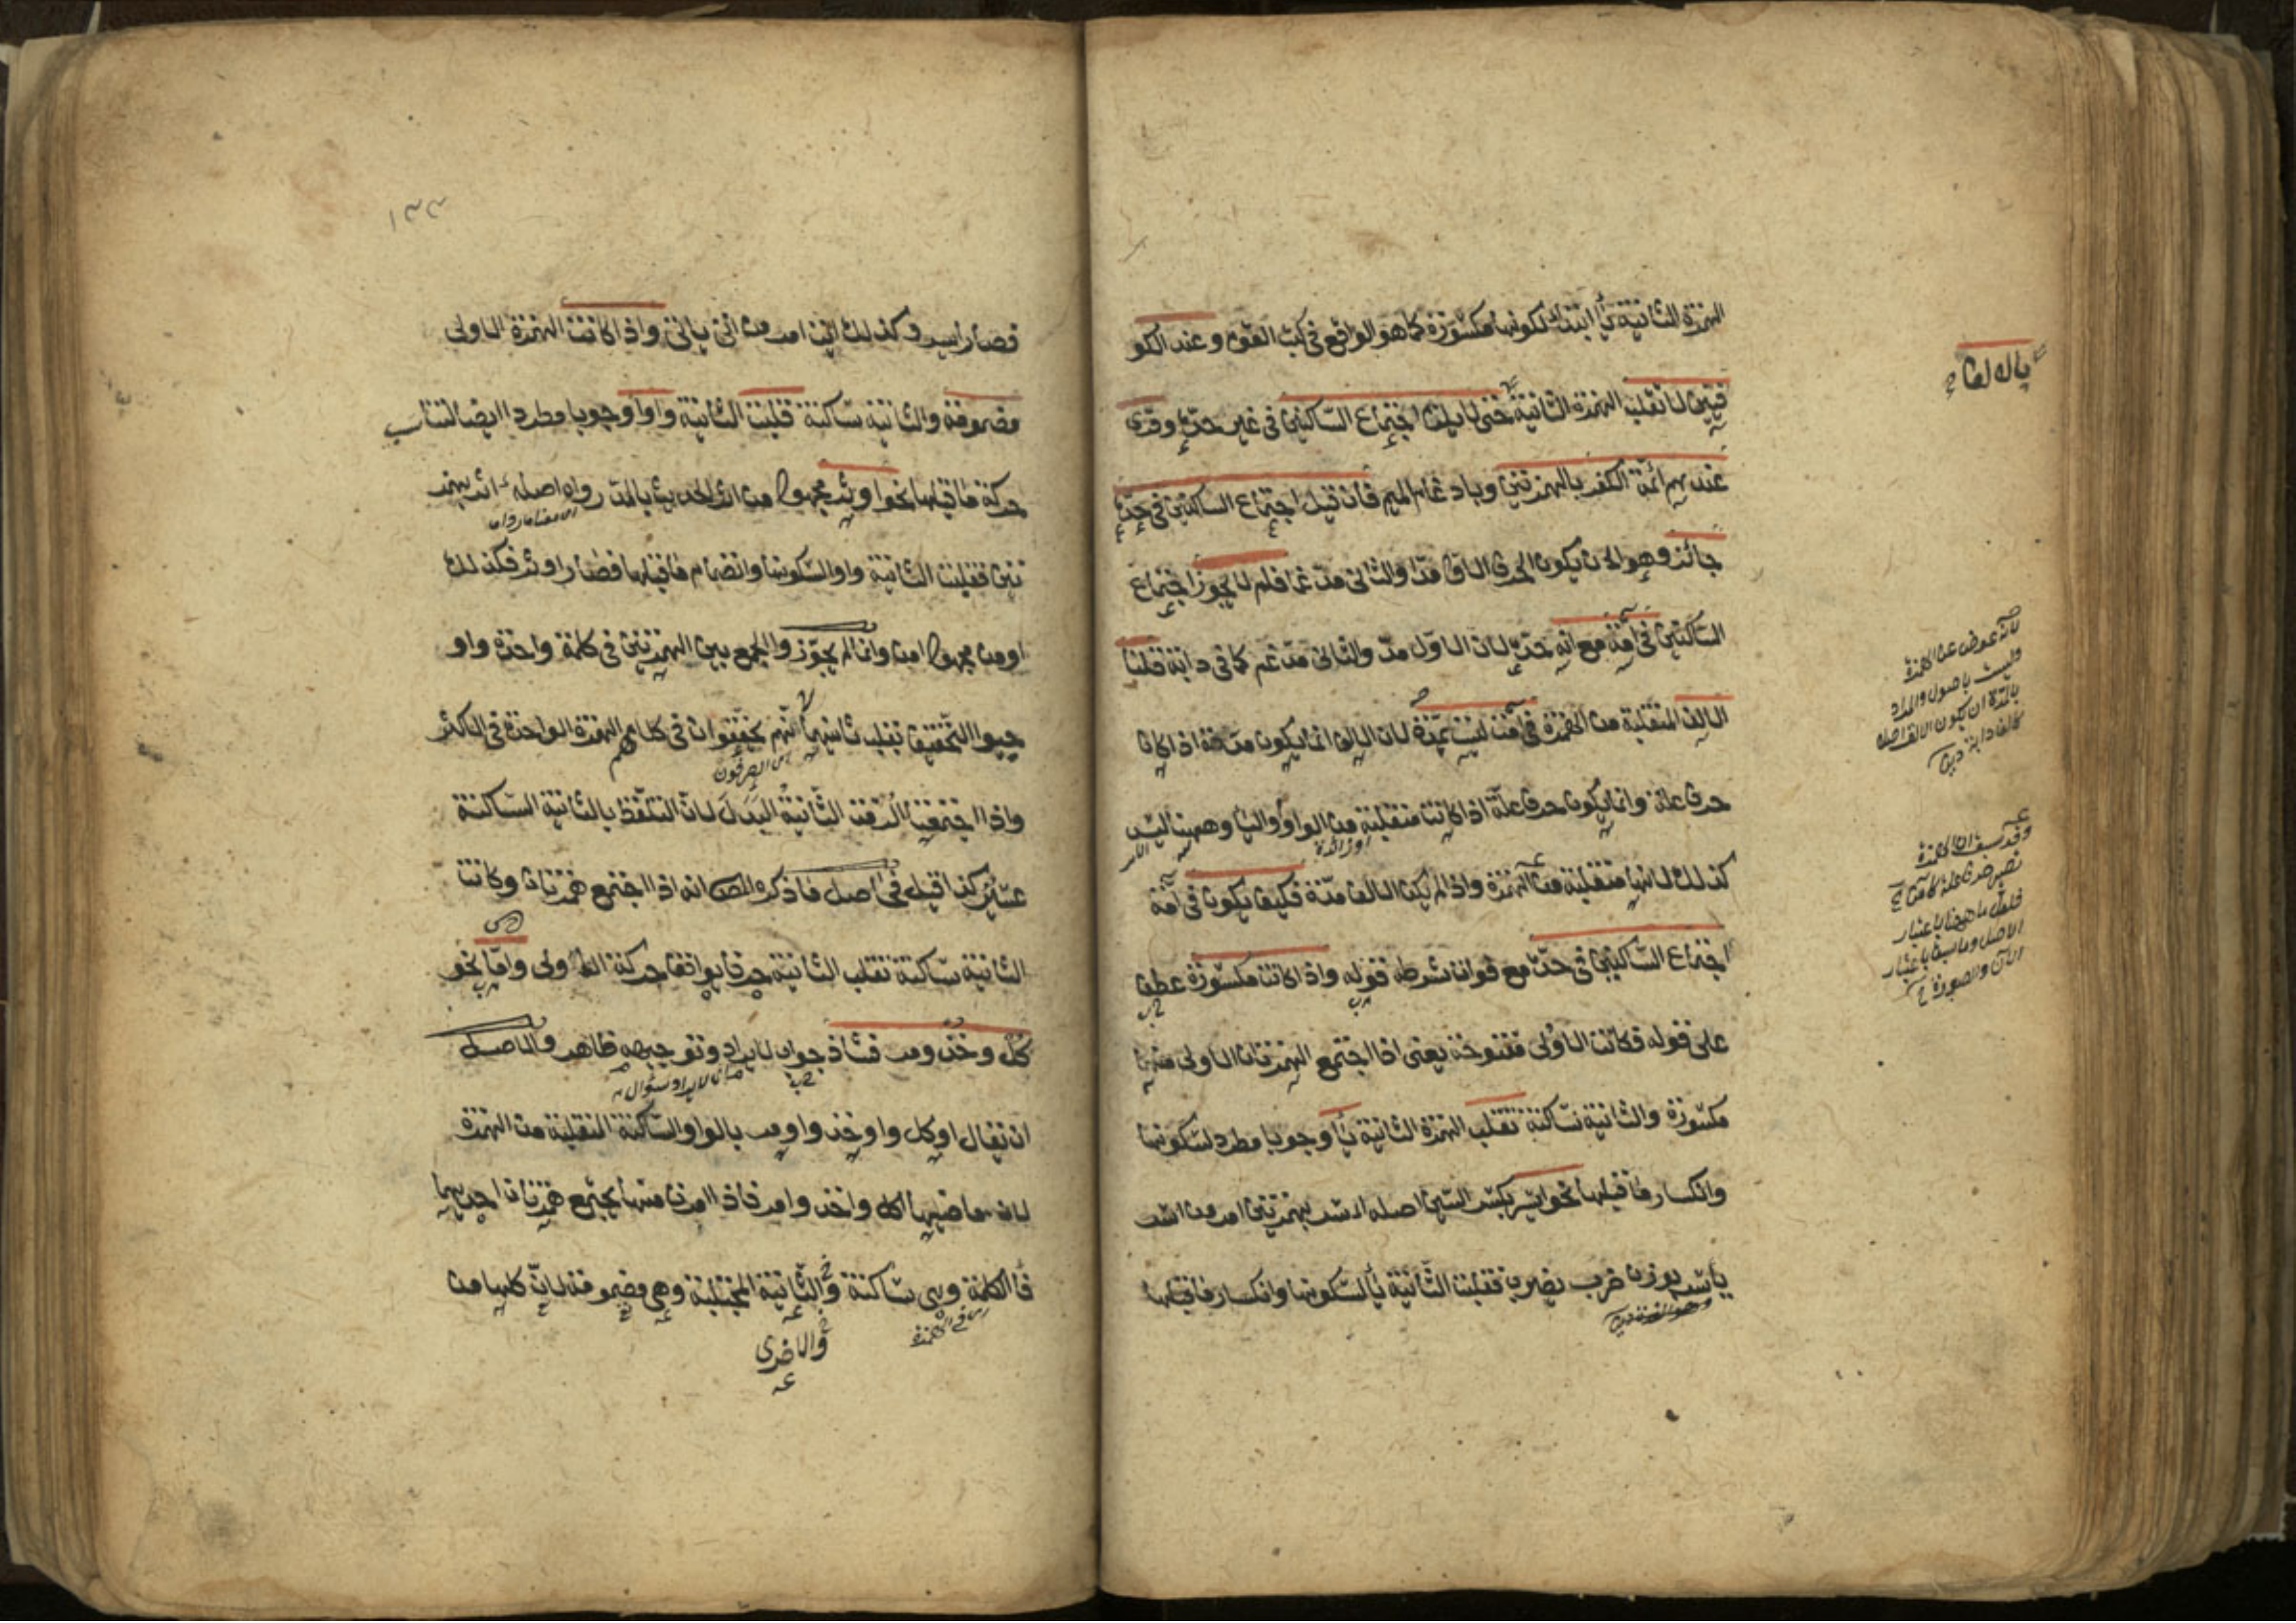 الهمزة الثانية ياء ابتداء لكونها مكسورة كما هو الواقع في كتب القوم وعند الكو
فيين لا تقلب الهمزة الثانية حتى لا يلزم اجتماع الساكنين في غير حده وقرئ
عندهم ائمة الكفر بالهمزتين وبادغام الميم فان قيل اجتماع الساكنين في حده
جائز وهو ان يكون الحرف الاول مدا والثاني مدغما فلم لا يجوز اجتماع
الساكنين في آمة مع انه حده لان الاول مد والثاني مدغم كما في دابة قلنا
الالف المنقلبة من الهمزة في آمة ليست بمدة لان الالف انما يكون مدة اذا كانت
حرف علة وانما يكون حرف علة اذا كانت منقلبة من الواو والياء وههنا ليس
كذلك لانها منقلبة من الهمزة واذا لم يكن الالف مدة فكيف يكون في آمة
اجتماع الساكنين في حده مع فوات شرطه قوله واذا كانت مكسورة عطف
على قوله فكانت الاولى مفتوحة يعني اذا اجتمع الهمزتان الاولى منهما
مكسورة والثانية ساكنة تقلب الهمزة الثانية ياء وجوبا مطرد لسكونها
وانكسار ما قبلها نحو ايسر بكسر السين اصله ائسر بهمزتين امر من اسر
ياسر بوزن ضرب يضرب فقلبت الثانية ياء لسكونها وانكسار ما قبلها
لانه عوض عن الهمزة
وليست باصول والمراد
بالمدة ان يكون الالف اصله
كالف دابة
وقد سبق ان الهمزة
تصير حرف علة كآمن
فلعل ما ههنا باعتبار
الاصل وما سبق باعتبار
الآن والصورة
١٣٣
فصار ايسر وكذلك ايت امر من اتى ياتي واذا كانت الهمزة الاولى
مضمومة والثانية ساكنة قلبت الثانية واوا وجوبا مطردا ايضا لتناسب
حركة ما قبلها نحو اوثر مجهول من اثر الحديث بالمد رواه اصله أأثر بهمز
تين فقلبت الثانية واوا لسكونها وانضمام ما قبلها فصار اوثر فكذلك
اومن مجهول امن وان لم يجوزوا الجمع بين الهمزتين في كلمة واحدة واو
جبوا التخفيف بقلب ثانيهما لانهم يخففوان في كلامهم الهمزة الواحدة في الاكثر
اى الصرفيون
واذا اجتمعتا الزمت الثانية البدل لان التلفظ بالثانية الساكنة
عسير كذا قيل في اصل ما ذكره المص انه اذا اجتمع همزتان وكانت
الثانية ساكنة تقلب الثانية حرفا يوافق حركة الاولى واما نحو
كل وخذ ومر فشاذ جواب لايراد وتوجيهه ظاهر والاصل
ان يقال اوكل واوخذ واومر بالواو الساكنة المنقلبة من الهمزة
لان ماضيها اكل واخذ وامر فاذا امرنا منها يجتمع همزتان احديهما
فاء الكلمة وهي ساكنة والثانية المجتلبة وهي مضمومة لان كلها من
والاخرى